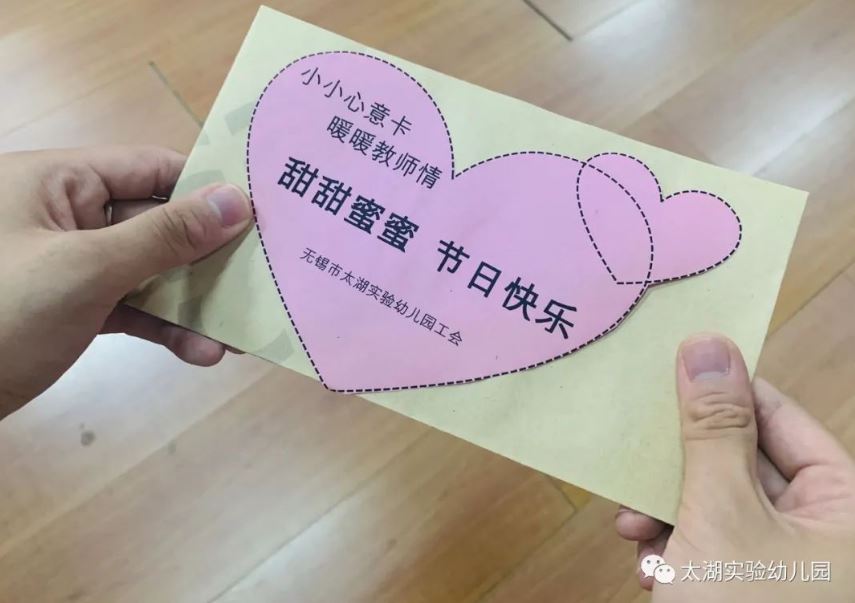 小小心意卡
暖暖教师情
甜甜蜜蜜 节日快乐
无锡市太湖实验幼儿园工会
太湖实验幼儿园